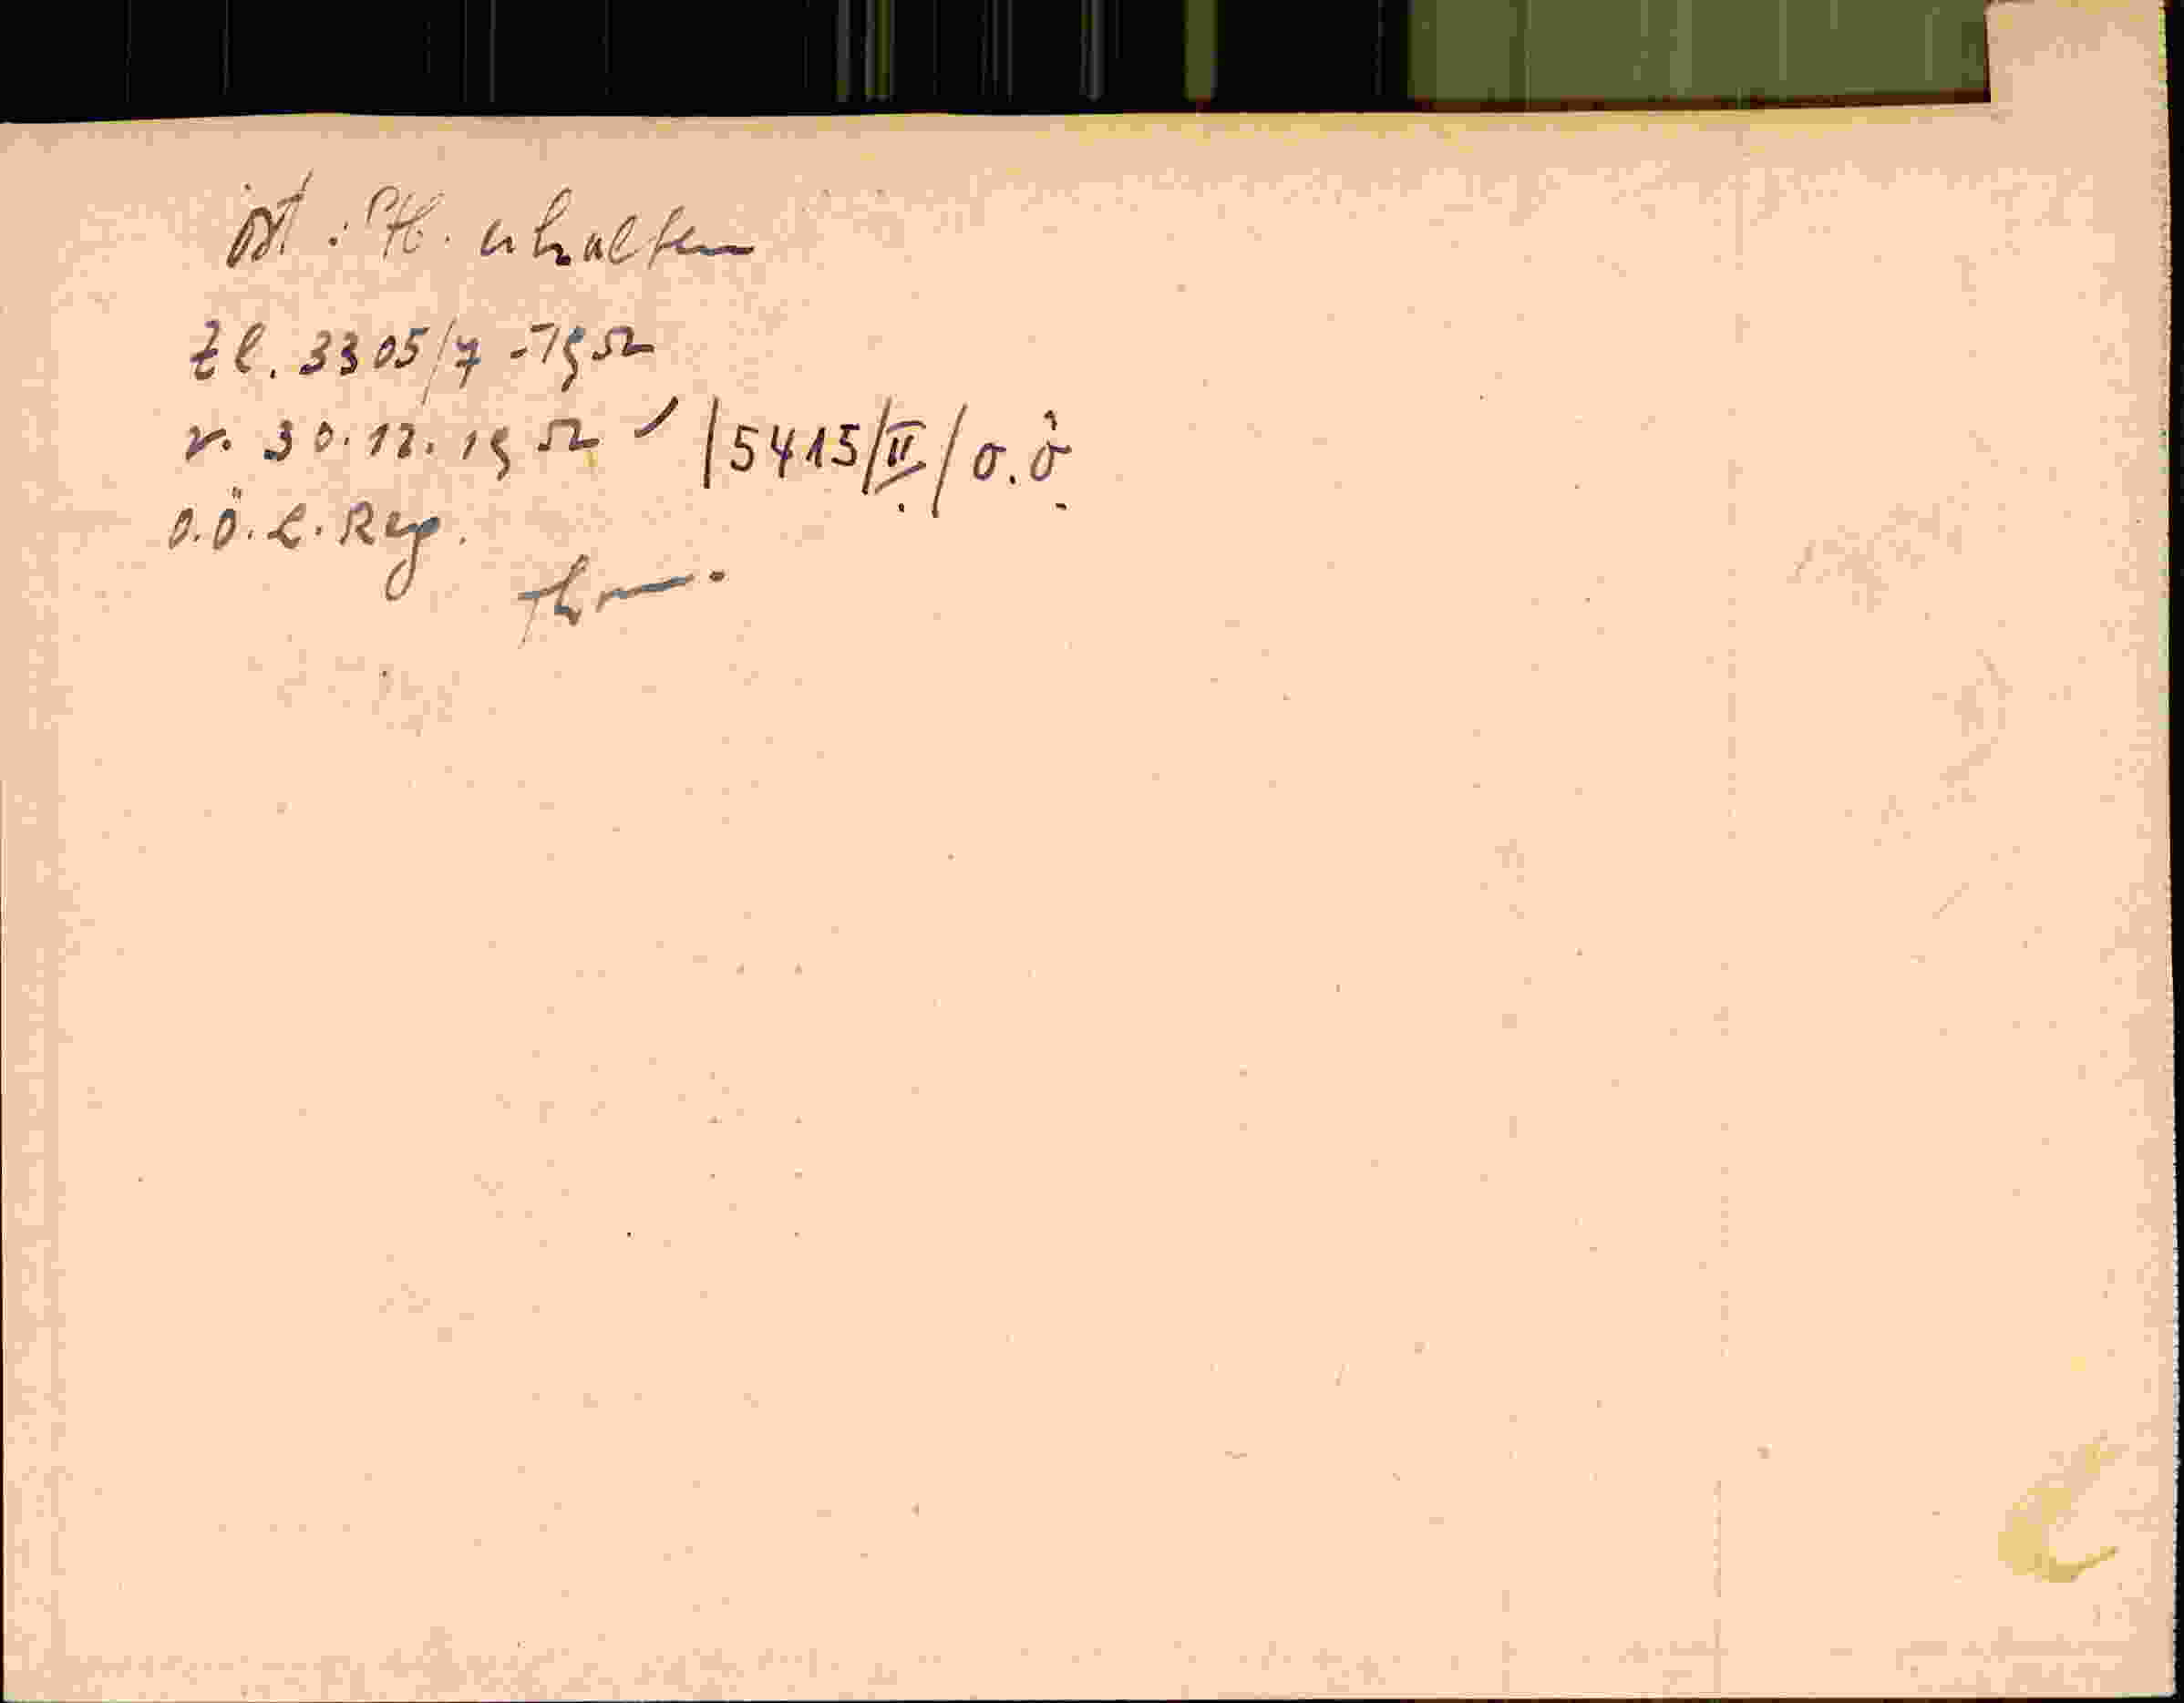 öst. St. erhalten
Zl. 3305/7 - 1952
v. 30.12.1952 / 5415/II/O.Ö.
O.Ö.L.Reg.